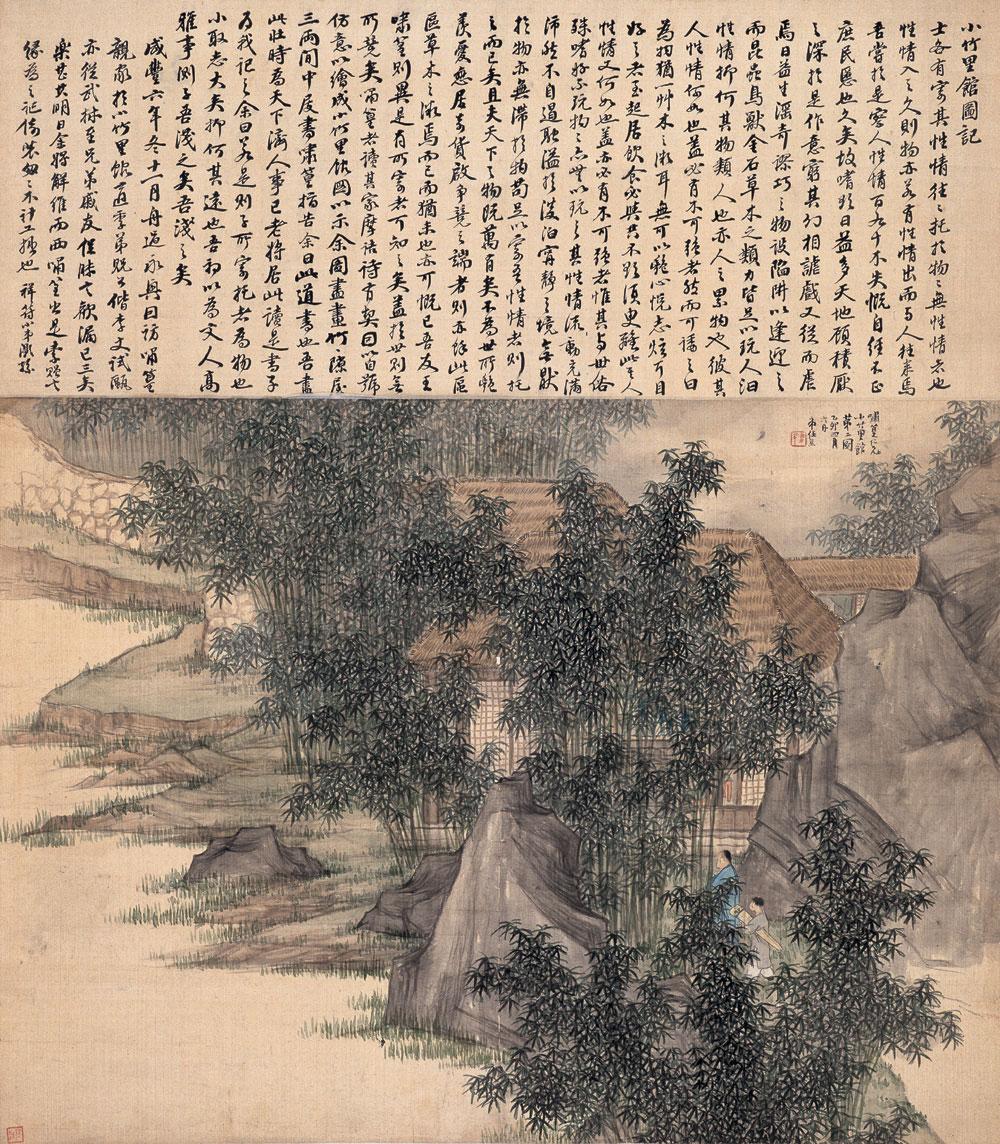 小竹里館圖記
士各有寄其性情往往托於物物無性情者也
性情入之久則物亦若有性情出而與人接焉
吾嘗於是察人性情百凡失慨自經不正
庶民慝也久矣故嗜好日益多天地頑樸厭
之深於是作意窮其幻相謔戲又從而虐
焉日益生淫奇謬巧之物設陷阱以逢迎之
而昆蟲鳥獸金石草木之類力皆足以玩人汩
性情抑何其物類人也亦人之累物也彼其
人性情何如也蓋必有不可強者然而可語之曰
為物猶一草木之微耳無可以心悅志炫耳目
好之者至起居飲食必與共不欲須臾離此其人
性情又何如也蓋亦有不可強者惟其與世俗
殊嗜好不玩物之無以玩之其性情流動充滿
沛然不自遏溢於淡泊甯靜之境無
於物亦無滯於物苟足以寄吾性情者則托
之而已矣且夫天下之物既萬有矣不為世所
居奇貨啟爭競之端者則亦僅此區
區草木之微焉而已而猶未也亦可慨已吾友王
嘯篁則異是有所寄者可知之矣蓋於世則無
所競矣嘯篁者讀其家摩詰詩有契因以自號
仿意以繪成小竹里館圖以示余圖盡畫竹隙屋
三兩間中庋書嘯篁指告余曰此道書也吾盡
此壯時為天下濟人事已老將居此讀是書子
為我記之余曰若是則子所寄托者為物也
小取志大矣抑何其遠也吾初以為文人高
雅事測子吾淺之矣吾淺之矣
咸豐六年冬十一月舟過永興因訪嘯篁
親家於小竹里館適季弟偕李文試甌
亦從武林至兄弟戚友促膝歡漏已三矣
樂甚共明日余將解維而西嘯篁出是索題
緣為之記倚裝匆匆不計工拙也祥符
嘯篁仁兄
小竹里館
第二圖
乙卯四月